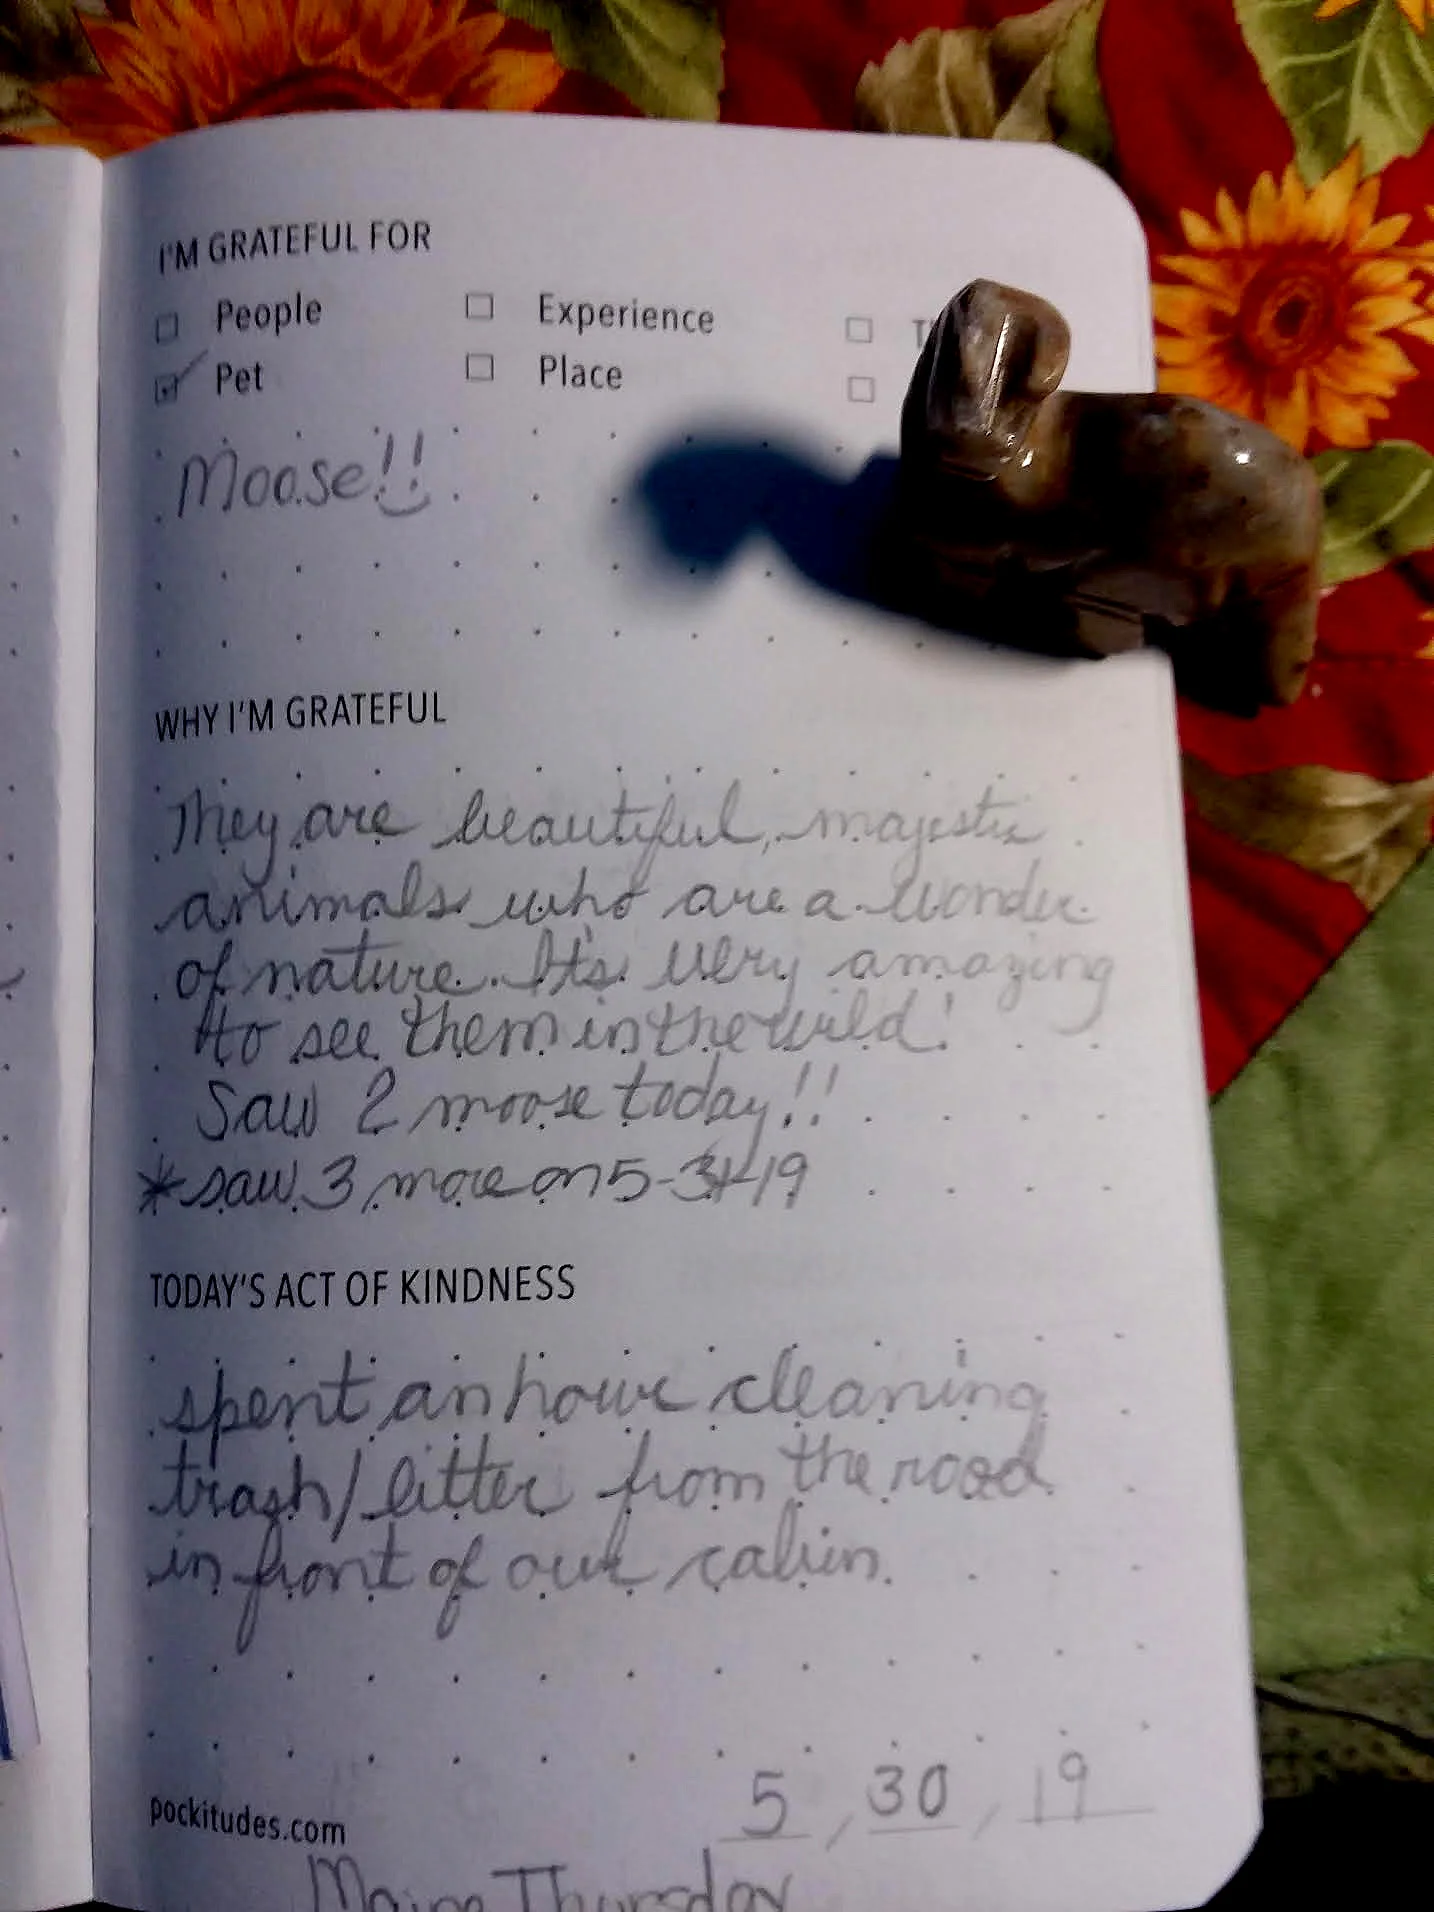 I'M GRATEFUL FOR
People Experience
Pet Place
Moose!!
WHY I'M GRATEFUL
They are beautiful, majestic
animals who are a wonder
of nature. It's very amazing
to see them in the wild!
Saw 2 moose today!!
*saw 3 more on 5-31-19
TODAY'S ACT OF KINDNESS
spent an hour cleaning
trash/litter from the road
in front of our cabin.
5/30/19
pockitudes.com
Maine Thursday